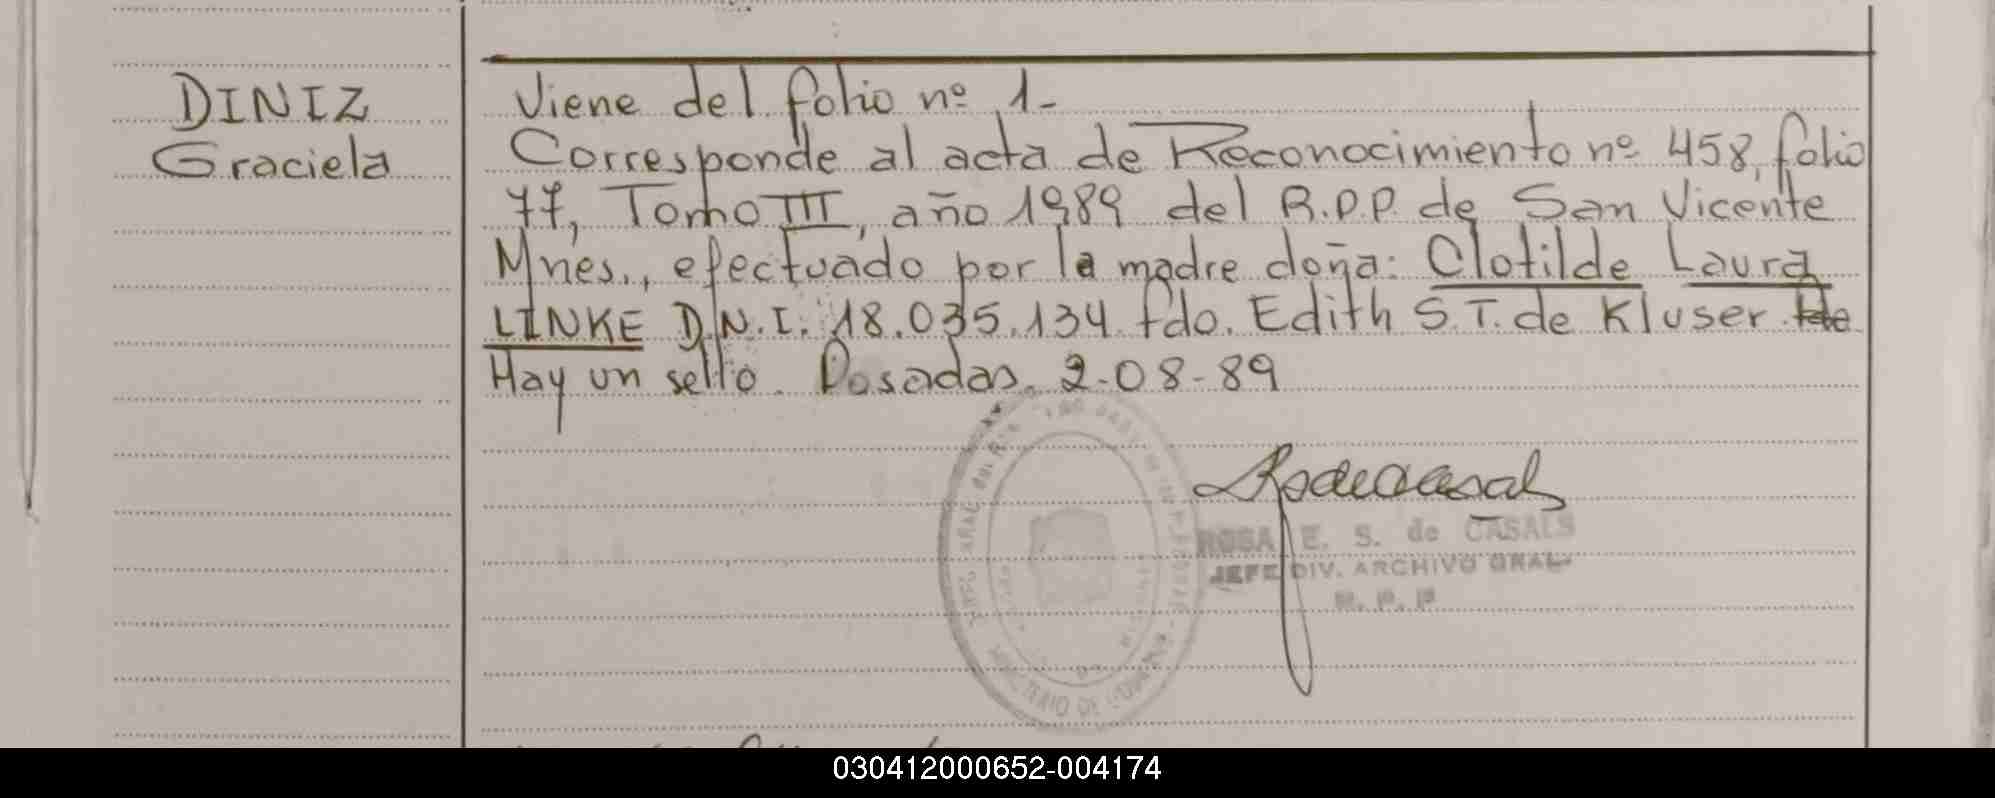 DINIZ
Graciela
Viene del folio nº 1-
Corresponde al acta de Reconocimiento nº 458, folio
77, Tomo III, año 1989 del R.P.P. de San Vicente
Mnes., efectuado por la madre doña: Clotilde Laura
LINKE D.N.I. 18.035.134 fdo. Edith S.T. de Kluser.
Hay un sello. Posadas, 2-08-89
ROSA E. S. de CASALS
JEFE DIV. ARCHIVO GRAL.
R. P. P
MINISTERIO DE GOBIERNO
030412000652-004174